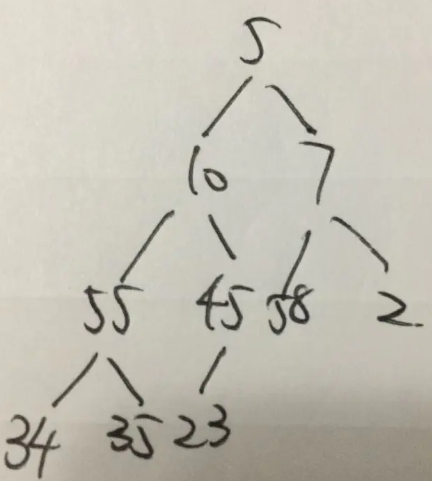 5
10 7
55 45 58 2
34 35 23